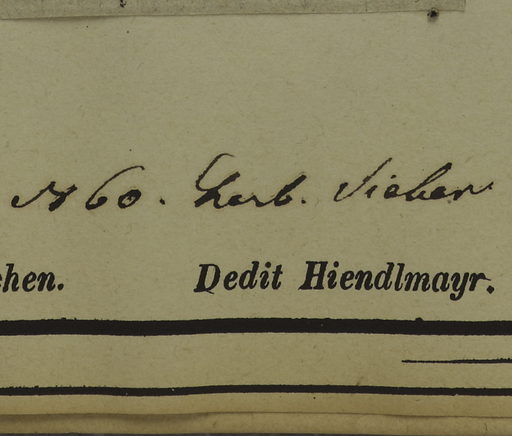 N 60. herb. Sieber
chen. Dedit Hiendlmayr.